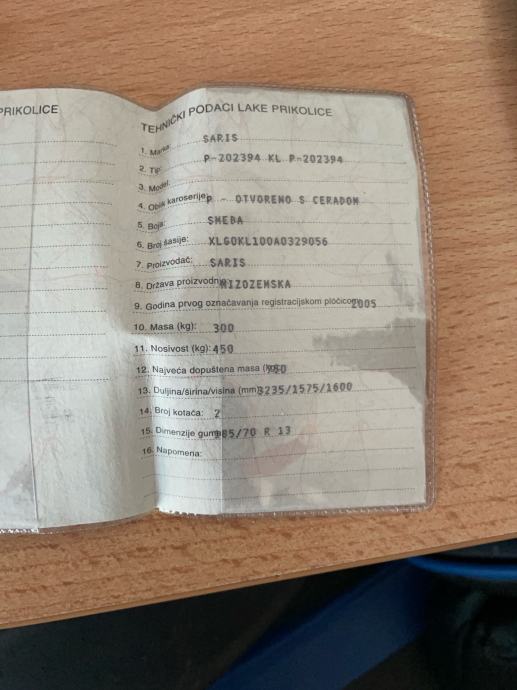 PRIKOLICE
TEHNIČKI PODACI LAKE PRIKOLICE
1. Marka: SARIS
2. Tip: P-202394 KL P-202394
3. Model:
4. Oblik karoserije: P - OTVORENO S CERADOM
5. Boja: SMEĐA
6. Broj šasije: XLG0KL100A0329056
7. Proizvođač: SARIS
8. Država proizvodnje NIZOZEMSKA
9. Godina prvog označavanja registracijskom pločicom 2005
10. Masa (kg): 300
11. Nosivost (kg): 450
12. Najveća dopuštena masa (kg) 750
13. Duljina/širina/visina (mm) 3235/1575/1600
14. Broj kotača: 2
15. Dimenzije guma 185/70 R 13
16. Napomena: